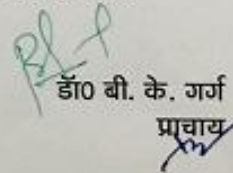 डॉ0 बी. के. गर्ग
प्राचार्य